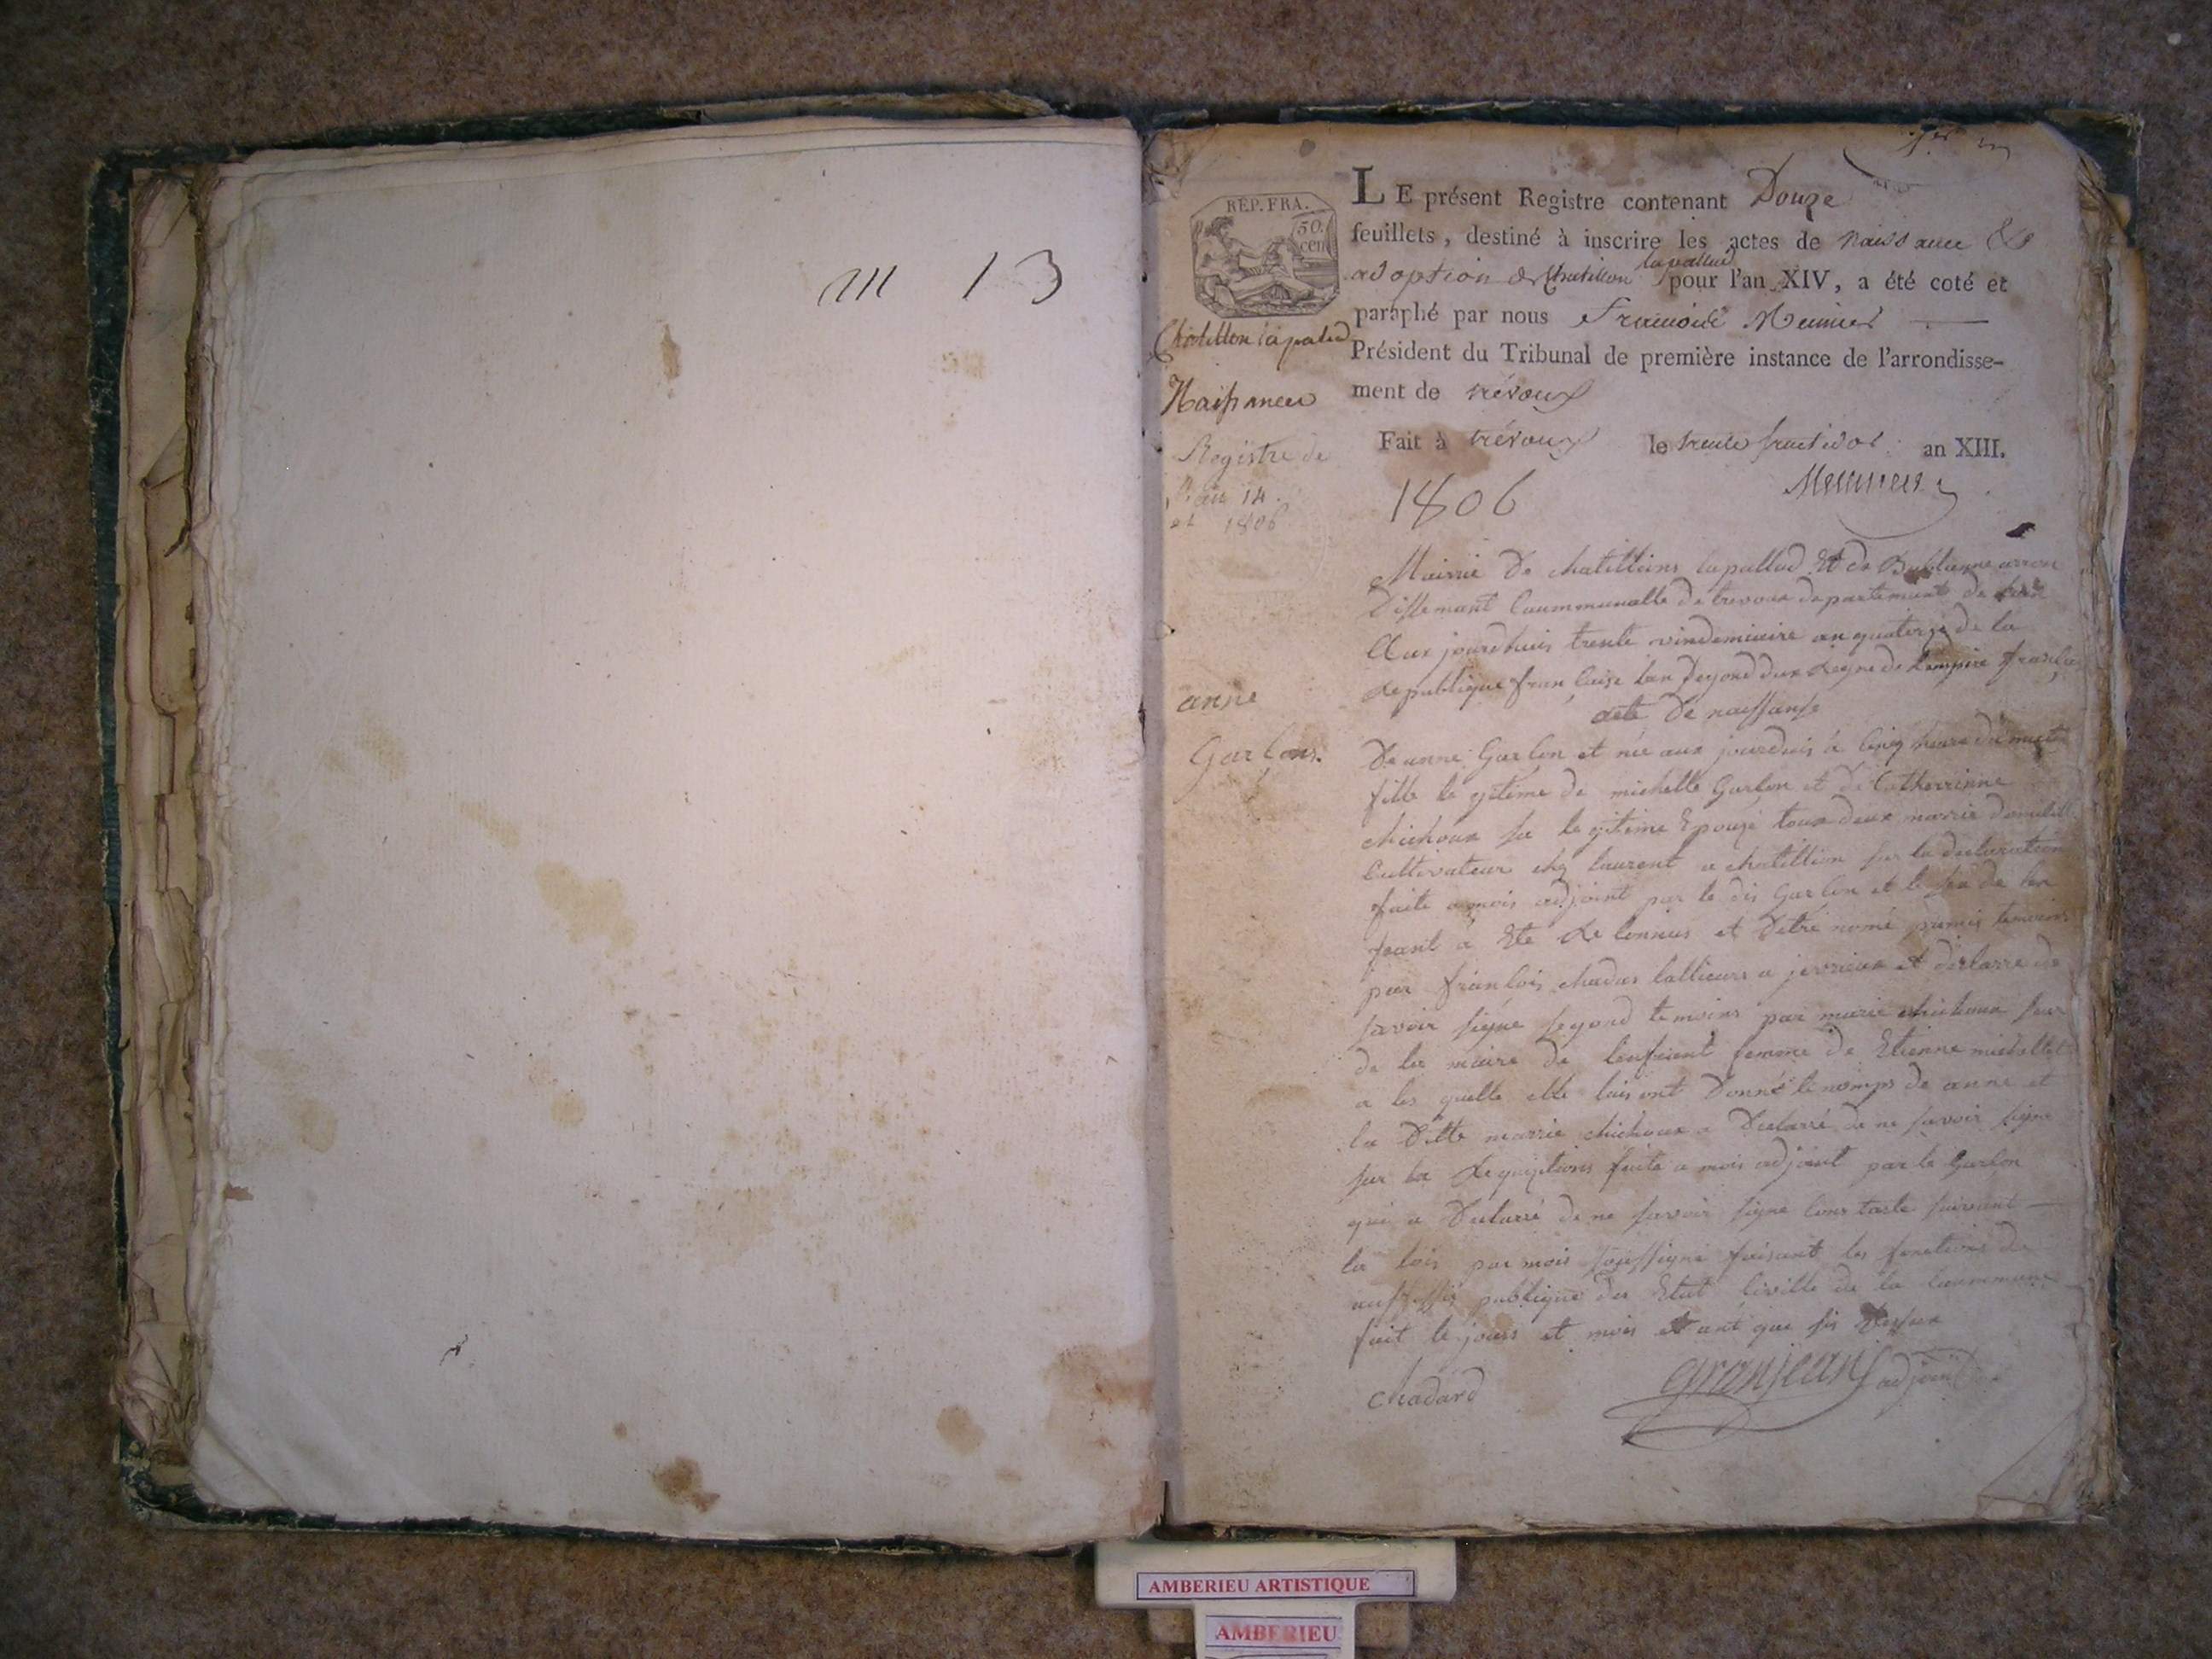 m 13
REP. FRA.
50.
cen
LE présent Registre contenant Douze
feuillets, destiné à inscrire les actes de naissance &
adoption de Chatillon lapallud pour l'an XIV, a été coté et
paraphé par nous François Meunier
Président du Tribunal de première instance de l'arrondisse-
ment de trévoux
Fait à trévoux le trente fructidor an XIII.
Meunier
Chatillon lapalud
Naissances
Registre de
l'an 14.
et 1806
1806
Mairie De chatillions lapallud Et de Bublianne arron
Dissemant Caummunalle De trevoux departement de
Aux jourdhuis trente vindemiaire an quatorze de la
Republique françaisse lan Segond dux Regne de Lempire
acte De naissanse
anne
Garçons.
De anne Garçon et née aux jourduis à cinq heure du
fille legitime de michelle Garçon et de Catherinne
chichoux sa legitime Epouze toux deux marrie
Cultivateur chez laurent a chatillion sur la declaration
faite a mois adjoint par le dis Garçon et le
feant à Ete de Connus et Detre nomé temoins
par françois chadas a et declarre de
savoir signe segond temoins par marie chichoux seur
de la maire de lenfient femme de Etienne
a les quelle elle luis ont Donné le nomps de anne et
la Ditte marrie chichoux a Declarré de ne savoir signe
sur la Requiptions faite a mois adjoint par le Garçon
qui a Declarré de ne savoir signe suivant
la lois par mois soussigne faisant les fonctions de
publique des Etat Civille de la Caummune
fait le jours et mois et ant que sis Dessux
chadard
granjean adjoint
AMBERIEU ARTISTIQUE
AMBERIEU